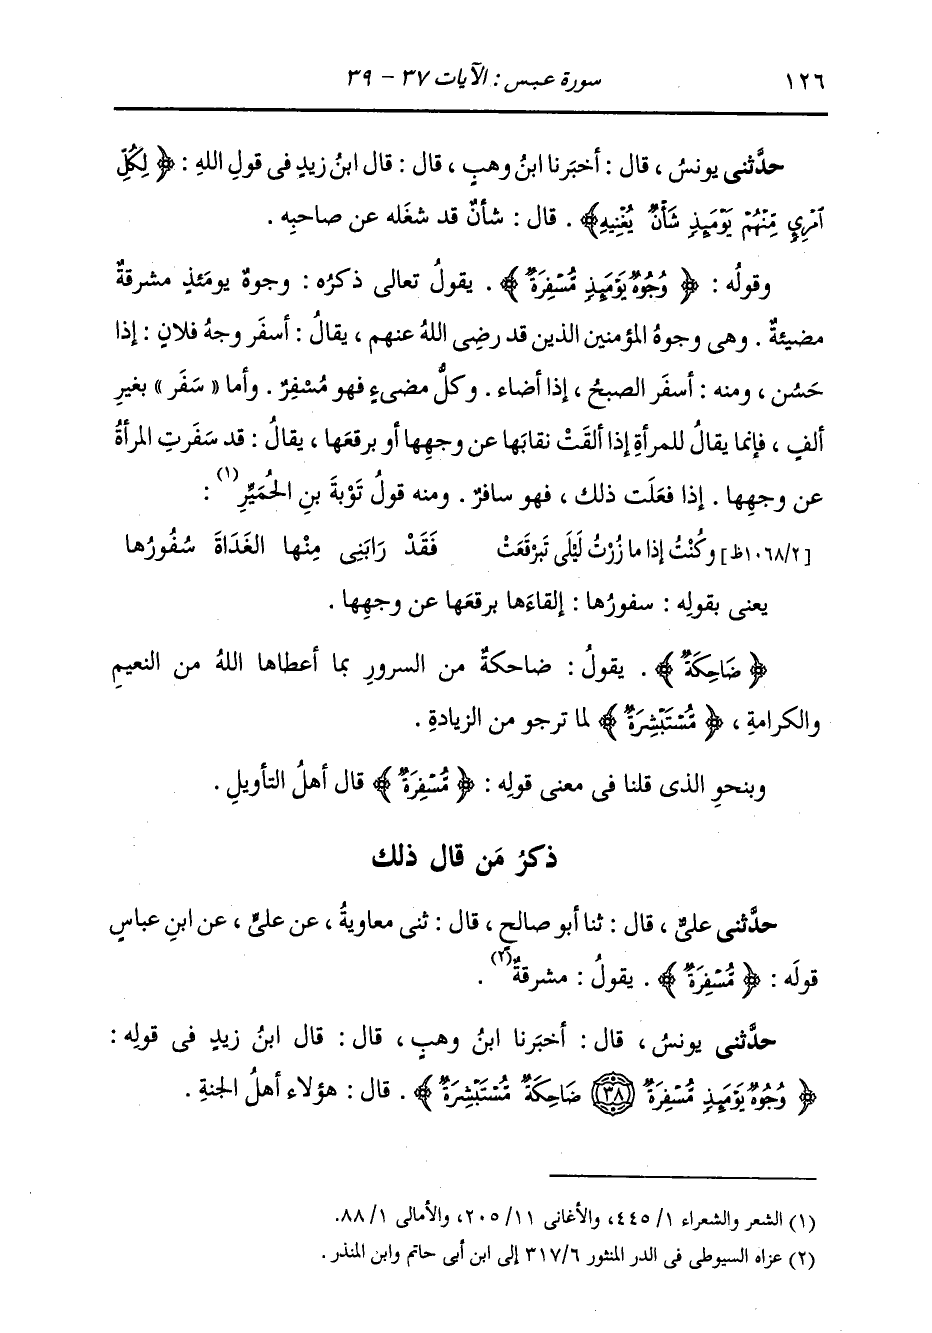 ١٢٦ سورة عبس : الآيات ٣٧ - ٣٩
حدَّثنى يونسُ ، قال : أخبَرنا ابنُ وهبٍ ، قال : قال ابنُ زيدٍ فى قولِ اللهِ : ﴿ لِكُلِّ
ٱمْرِىٕٕ مِّنْهُمْ يَوْمَئِذٍ شَأْنٌ يُغْنِيهِ﴾ . قال : شأنٌ قد شغَله عن صاحبِه .
وقولُه : ﴿ وُجُوهٌ يَوْمَئِذٍ مُّسْفِرَةٌ ﴾ . يقولُ تعالى ذكرُه : وجوهٌ يومَئذٍ مشرقةٌ
مضيئةٌ . وهى وجوهُ المؤمنين الذين قد رضِى اللهُ عنهم ، يقالُ : أسفَر وجهُ فلانٍ : إذا
حَسُن ، ومنه : أسفَر الصبحُ ، إذا أضاء . وكلُّ مضىءٍ فهو مُسْفِرٌ . وأما « سَفَر » بغيرِ
ألفٍ ، فإنما يقالُ للمرأةِ إذا ألقَتْ نقابَها عن وجهِها أو برقعَها ، يقالُ : قد سَفَرتِ المرأةُ
عن وجهِها . إذا فعَلَت ذلك ، فهو سافرٌ . ومنه قولُ تَوْبةَ بنِ الحُمَيِّرِ(١) :
[١٠٦٨/٢ظ] وكُنْتُ إذا ما زُرْتُ لَيْلَى تَبَرْقَعَتْ فَقَدْ رَابَنِى مِنْها الغَدَاةَ سُفُورُها
يعنى بقولِه : سفورُها : إلقاءَها برقعَها عن وجهِها .
﴿ ضَاحِكَةٌ ﴾ . يقولُ : ضاحكةٌ من السرورِ بما أعطاها اللهُ من النعيمِ
والكرامةِ ، ﴿ مُّسْتَبْشِرَةٌ ﴾ لما ترجو من الزيادةِ .
وبنحوِ الذى قلنا فى معنى قولِه : ﴿ مُّسْفِرَةٌ ﴾ قال أهلُ التأويلِ .
ذكرُ مَن قال ذلك
حدَّثنى علىٌّ ، قال : ثنا أبو صالحٍ ، قال : ثنى معاويةُ ، عن علىٍّ ، عن ابنِ عباسٍ
قولَه : ﴿ مُّسْفِرَةٌ ﴾ . يقولُ : مشرقةٌ(٢) .
حدَّثنى يونسُ ، قال : أخبَرنا ابنُ وهبٍ ، قال : قال ابنُ زيدٍ فى قولِه :
﴿ وُجُوهٌ يَوْمَئِذٍ مُّسْفِرَةٌ ٣٨ ضَاحِكَةٌ مُّسْتَبْشِرَةٌ ﴾ . قال : هؤلاء أهلُ الجنةِ .
(١) الشعر والشعراء ٤٤٥/١، والأغانى ٢٠٥/١١، والأمالى ٨٨/١.
(٢) عزاه السيوطى فى الدر المنثور ٣١٧/٦ إلى ابن أبى حاتم وابن المنذر .